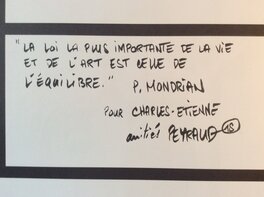 "LA LOI LA PLUS IMPORTANTE DE LA VIE
ET DE L'ART EST CELLE DE
L'ÉQUILIBRE." P. MONDRIAN
POUR CHARLES-ETIENNE
amitiés PEYRAUD 18